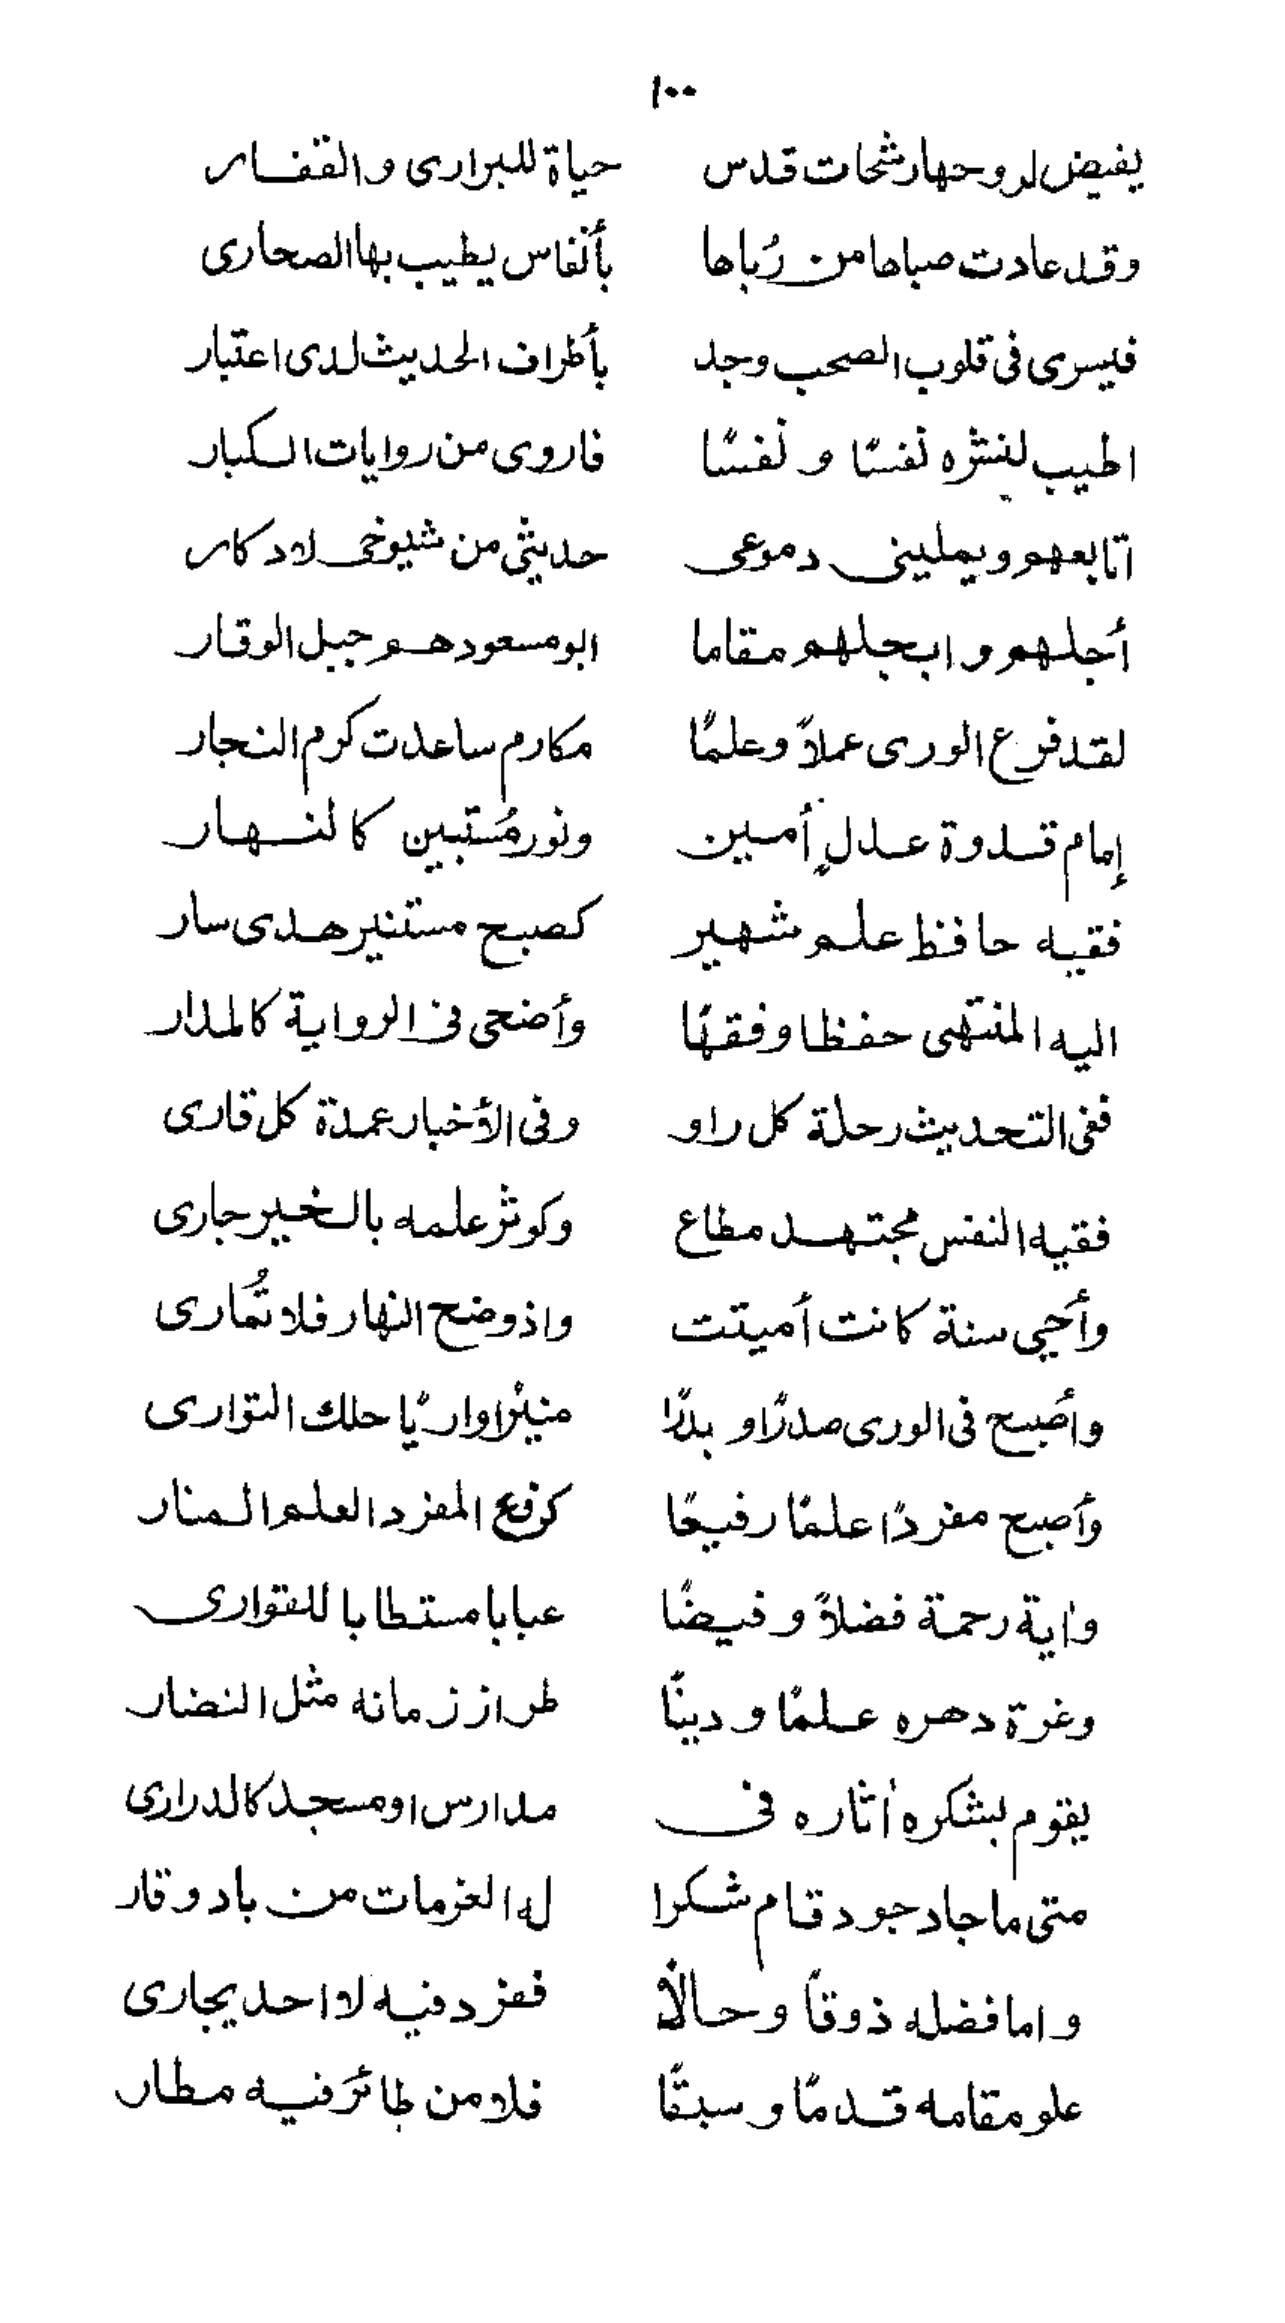 ١٠٠
يفيض لروحها رشحات قدس حياة للبرارى والقفار
وقد عادت صباها من رُباها بأنفاس يطيب بها الصحارى
فيسرى فى قلوب الصحب وجد بأطراف الحديث لدى اعتبار
اطيب لنشره نَفسًا و نَفسًا فاروى من روايات الكبار
اتابعهم ويمليني دموعى حديثى من شيوخى لادكار
أجلهم وابجلهم مقاما ابو مسعودهم جبل الوقار
لقد فرع الورى عملاً وعلمًا مكارم ساعدت كرم النجار
إمام قدوة عدلٍ أمين ونور مُستبين كالنهار
فقيه حافظ علم شهير كصبح مستنير هدى سار
اليه المنتهى حفظا وفقهًا وأضحى فى الرواية كالمدار
ففى التحديث رحلة كل راو وفى الأخبار عمدة كل قارى
فقيه النفس مجتهد مطاع وكوثر علمه بالخير جارى
وأحيى سنة كانت أميتت واذ وضح النهار فلا تُمارى
وأصبح فى الورى صدرًا و بدرًا منيرًا واريًا حلك التوارى
وأصبح مفردًا علمًا رفيعًا كرفع المفرد العلم المنار
واٰية رحمة فضلاً و فيضًا عبابا مستطابا للقوارى
وغرة دهره علمًا و دينًا طراز زمانه مثل النضار
يقوم بشكره اٰثاره فى مدارس او مسجد كالدرارى
متى ما جاد جود قام شكرا له العزمات من باد وقار
واما فضله ذوقاً وحالاً ففرد فيه لا احد يجارى
علو مقامه قدمًا و سبقًا فلا من طائر فيه مطار